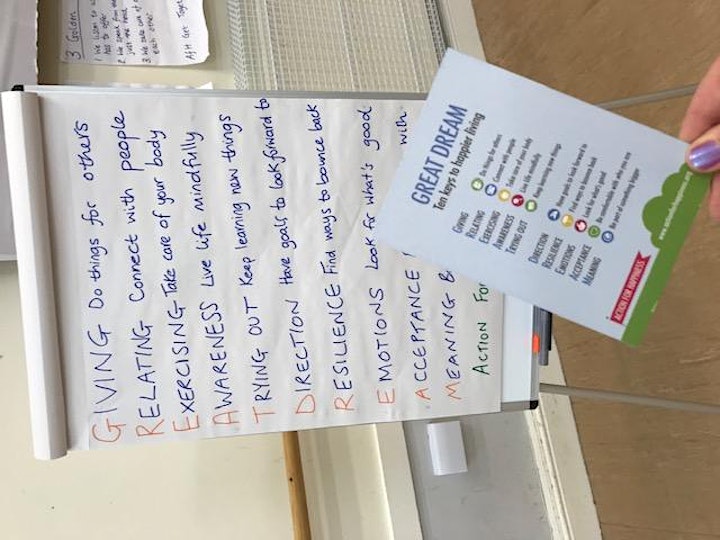 3 Golden
1 We listen to
has to offer
2 We speak from
just the head
3 We take care of
each other
GIVING Do things for others
RELATING Connect with people
EXERCISING Take care of your body
AWARENESS Live life mindfully
TRYING OUT Keep learning new things
DIRECTION Have goals to look forward to
RESILIENCE Find ways to bounce back
EMOTIONS Look for what's good
ACCEPTANCE with
MEANING
ACTION For
GREAT DREAM
Ten keys to happier living
GIVING Do things for others
RELATING Connect with people
EXERCISING Take care of your body
AWARENESS Live life mindfully
TRYING OUT Keep learning new things
DIRECTION Have goals to look forward to
RESILIENCE Find ways to bounce back
EMOTIONS Look for what's good
ACCEPTANCE Be comfortable with who you are
MEANING Be part of something bigger
ACTION FOR HAPPINESS